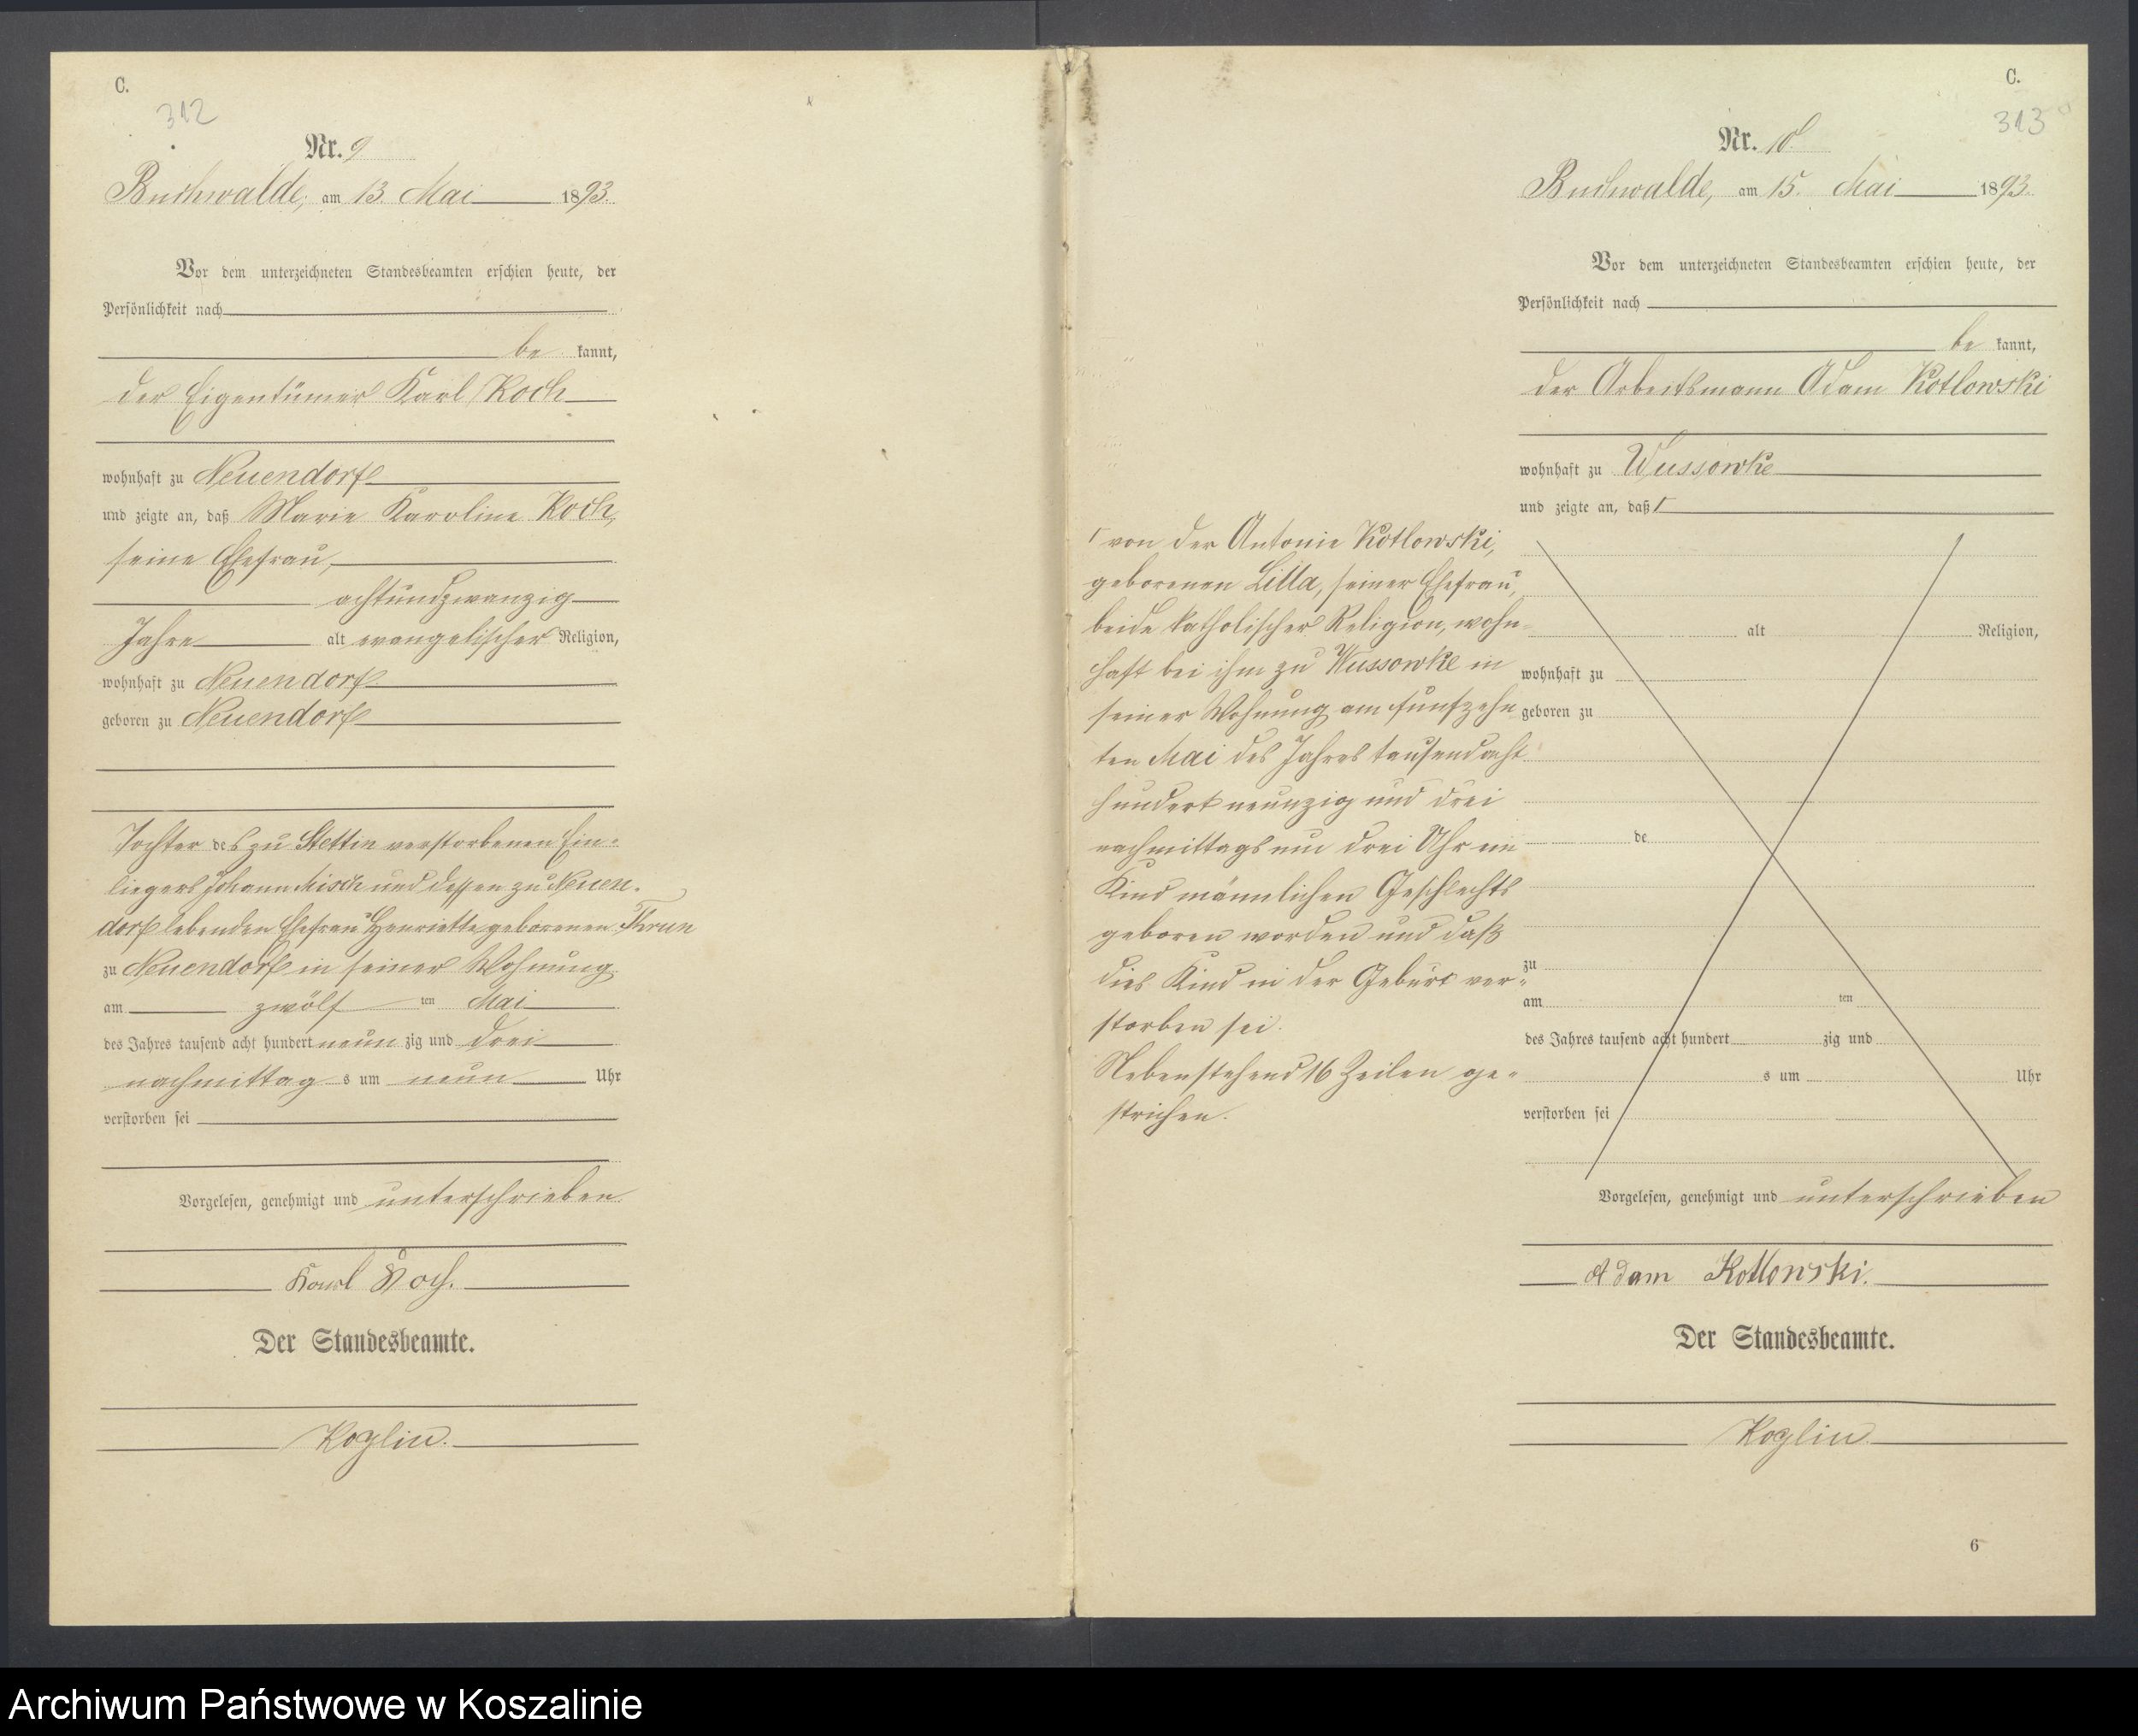 C.
312
Nr. 9
Buchwalde, am 13. Mai 1893.
Vor dem unterzeichneten Standesbeamten erschien heute, der
Persönlichkeit nach
be kannt,
der Eigentümer Karl Koch
wohnhaft zu Neuendorf
und zeigte an, daß Marie Karoline Koch,
seine Ehefrau,
achtundzwanzig
Jahre alt evangelischer Religion,
wohnhaft zu Neuendorf
geboren zu Neuendorf
Tochter des zu Stettin verstorbenen Ein-
liegers Johann Misch und dessen zu Neuen-
dorf lebenden Ehefrau Henriette geborenen Thrun
zu Neuendorf in seiner Wohnung
am zwölf ten Mai
des Jahres tausend acht hundert neun zig und drei
nachmittag s um neun Uhr
verstorben sei
Vorgelesen, genehmigt und unterschrieben
Karl Koch.
Der Standesbeamte.
Koglin.
C.
313
Nr. 10.
Buchwalde, am 15. Mai 1893.
Vor dem unterzeichneten Standesbeamten erschien heute, der
Persönlichkeit nach
be kannt,
der Arbeitsmann Adam Kotlowski
wohnhaft zu Wussowke
und zeigte an, daß Γ
Γ von der Antonie Kotlowski,
geborenen Lilla, seiner Ehefrau,
beide katholischer Religion, wohn-
haft bei ihm zu Wussowke in
seiner Wohnung am funfzehn
ten Mai des Jahres tausend acht
hundert neunzig und drei
nachmittags um drei Uhr ein
Kind männlichen Geschlechts
geboren worden und daß
dies Kind in der Geburt ver-
storben sei.
Nebenstehend 16 Zeilen ge-
strichen.
alt Religion,
wohnhaft zu
geboren zu
de
zu
am ten
des Jahres tausend acht hundert zig und
s um Uhr
verstorben sei
Vorgelesen, genehmigt und unterschrieben
Adam Kotlowski.
Der Standesbeamte.
Koglin
6
Archiwum Państwowe w Koszalinie